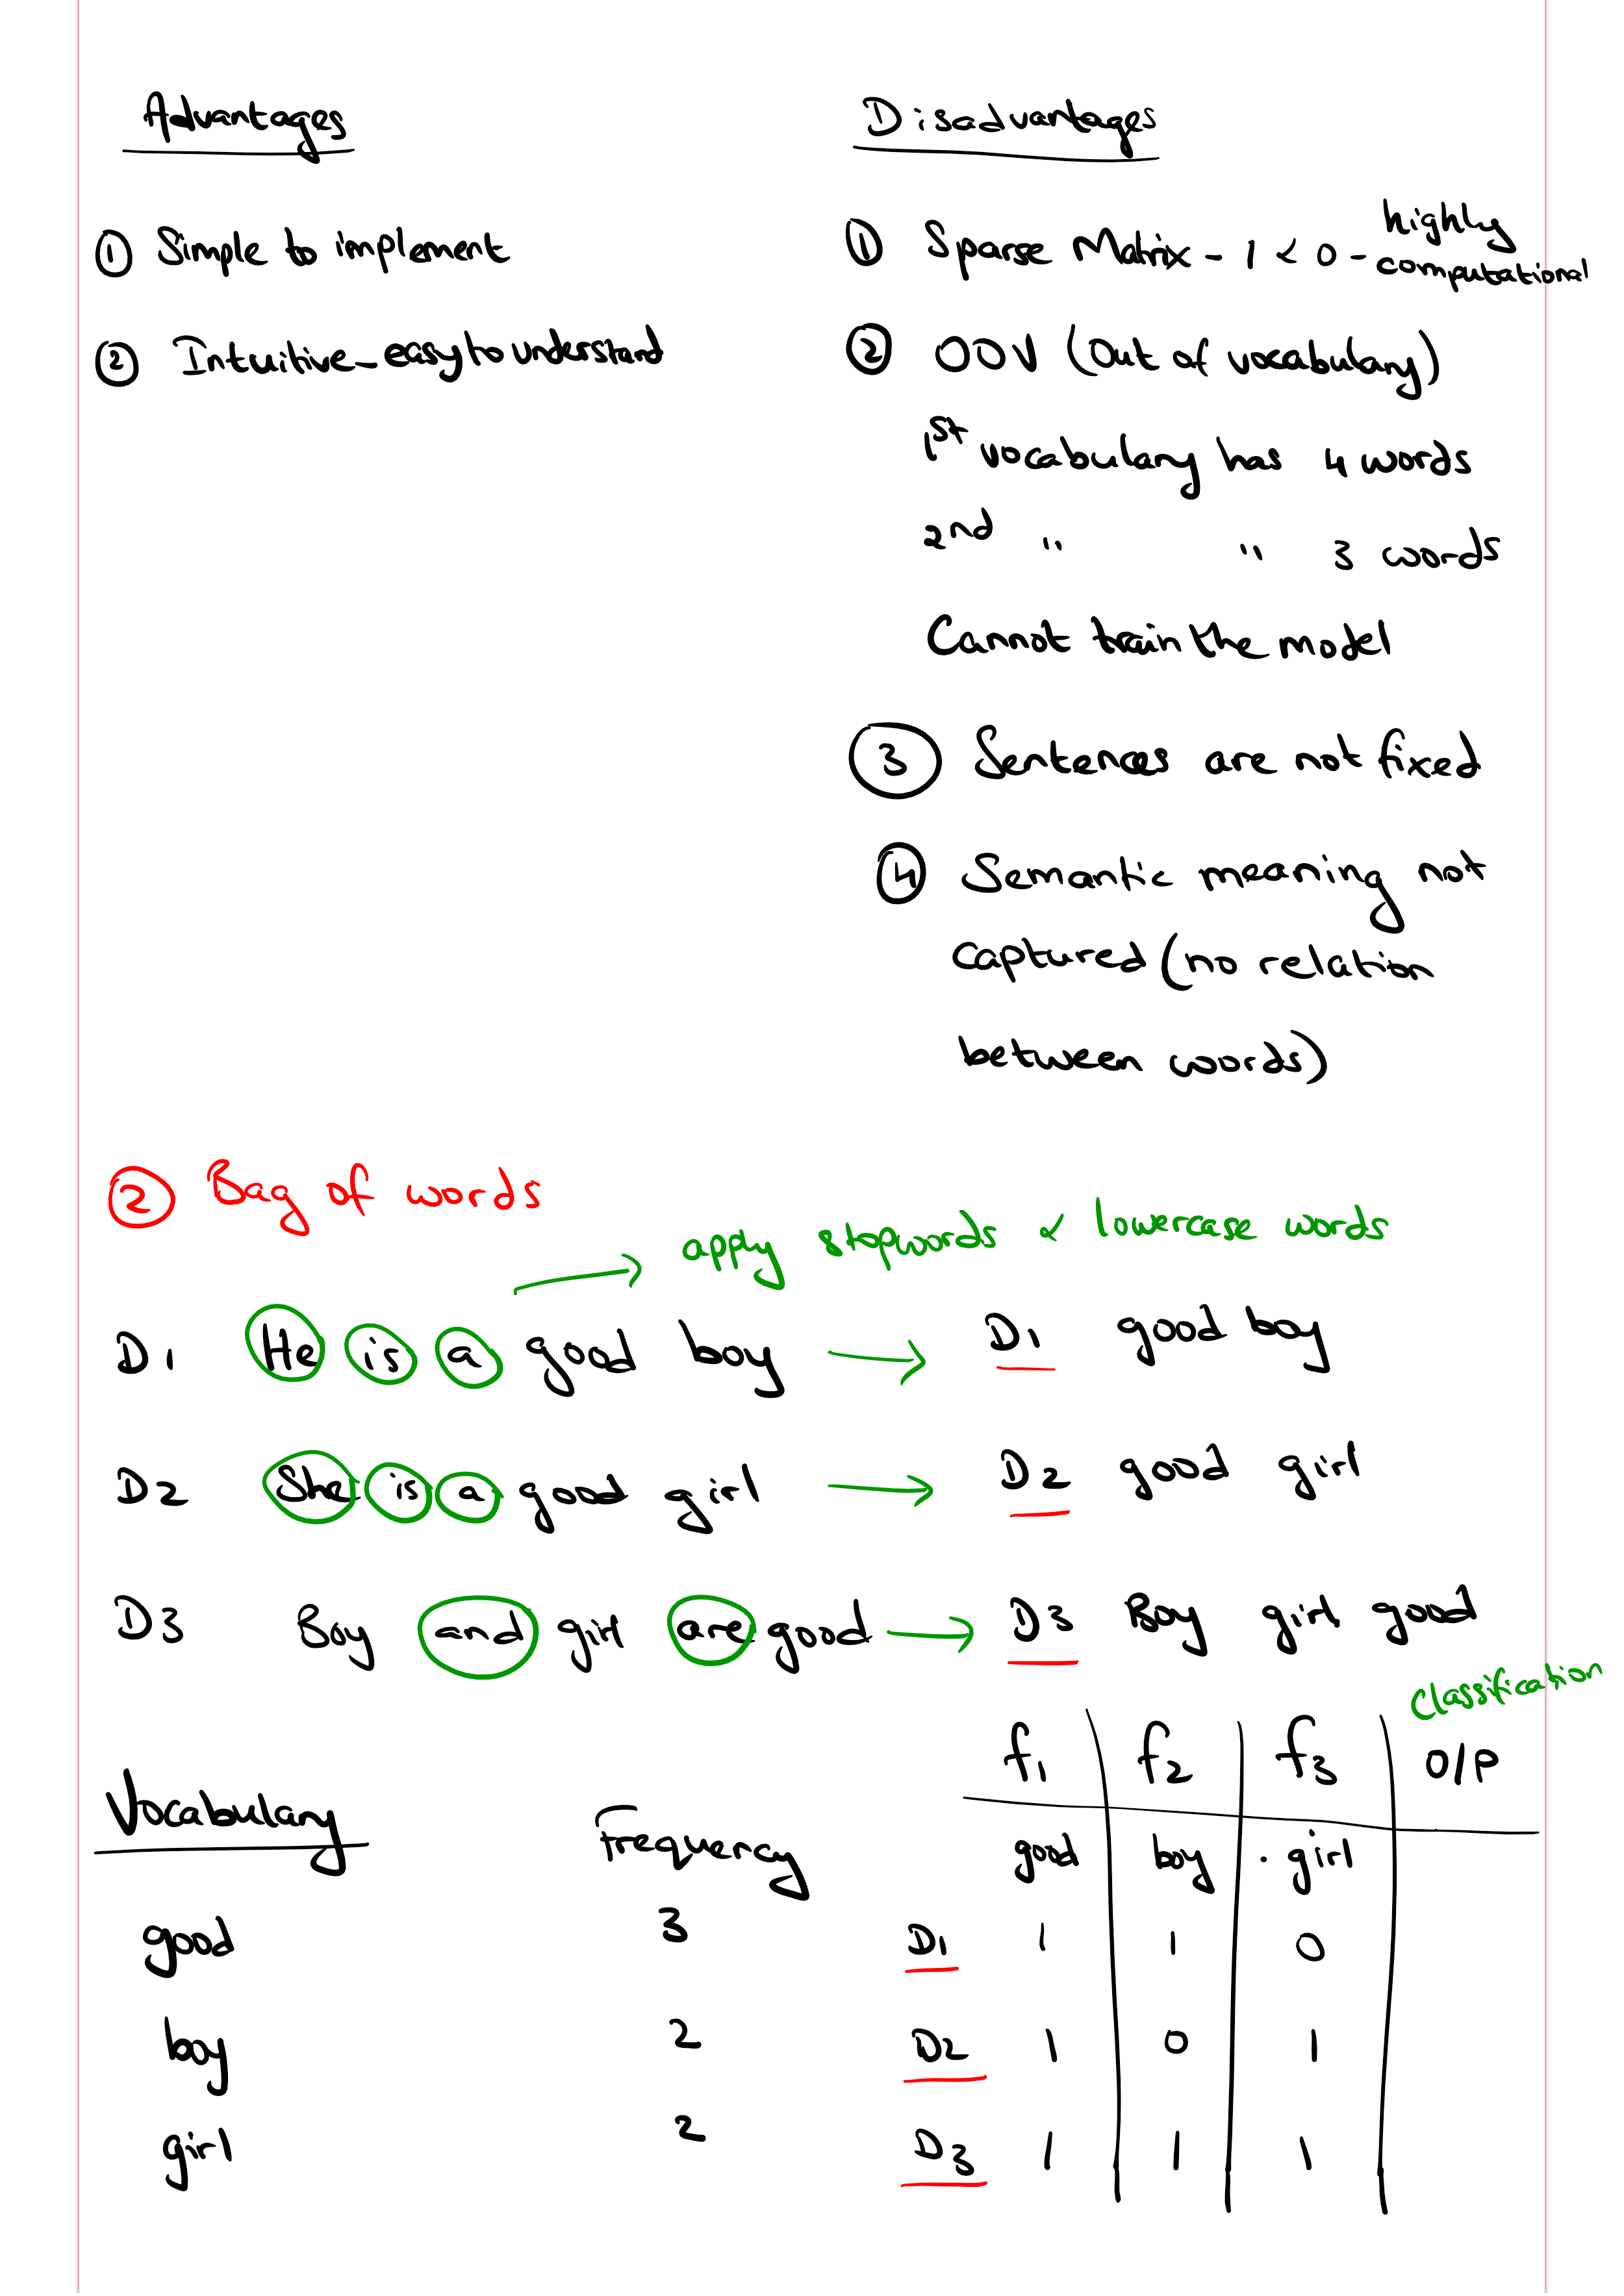 Advantages
① Simple to implement
② Intuitive - easy to understand
Disadvantages
① Sparse Matrix - 1 & 0 - highly computational
② OOV (Out of vocabulary)
1st vocabulary has 4 words
2nd " " 3 words
Cannot train the model
③ Sentences are not fixed
④ Semantic meaning not
captured (no relation
between words)
② Bag of words
→ apply stopwords & lowercase words
D1 He is a good boy → D1 good boy
D2 She is a good girl → D2 good girl
D3 Boy and girl are good → D3 Boy girl good
Vocabulary Frequency
good 3
boy 2
girl 2
Classification
f1 f2 f3 O/P
good boy . girl
D1 1 1 0
D2 1 0 1
D3 1 1 1